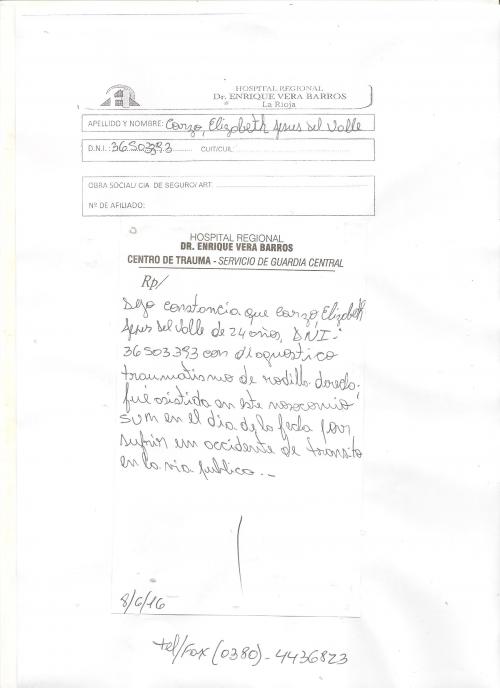 HOSPITAL REGIONAL
Dr. ENRIQUE VERA BARROS
La Rioja
APELLIDO Y NOMBRE: Carzo, Elizabeth Jesus del Valle
D.N.I.: 36503393 CUIT/CUIL:
OBRA SOCIAL/ CIA. DE SEGURO/ ART:
Nº DE AFILIADO:
HOSPITAL REGIONAL
DR. ENRIQUE VERA BARROS
CENTRO DE TRAUMA - SERVICIO DE GUARDIA CENTRAL
Rp/
Dejo constancia que Carzo Elizabeth
Jesus del Valle de 24 años, DNI:
36503393 con diagnostico
traumatismo de rodilla
fue asistida en este nosocomio
en el dia de la fecha por
sufrir un accidente de transito
en la via publica.-
8/6/16
tel/Fax (0380)-4436823